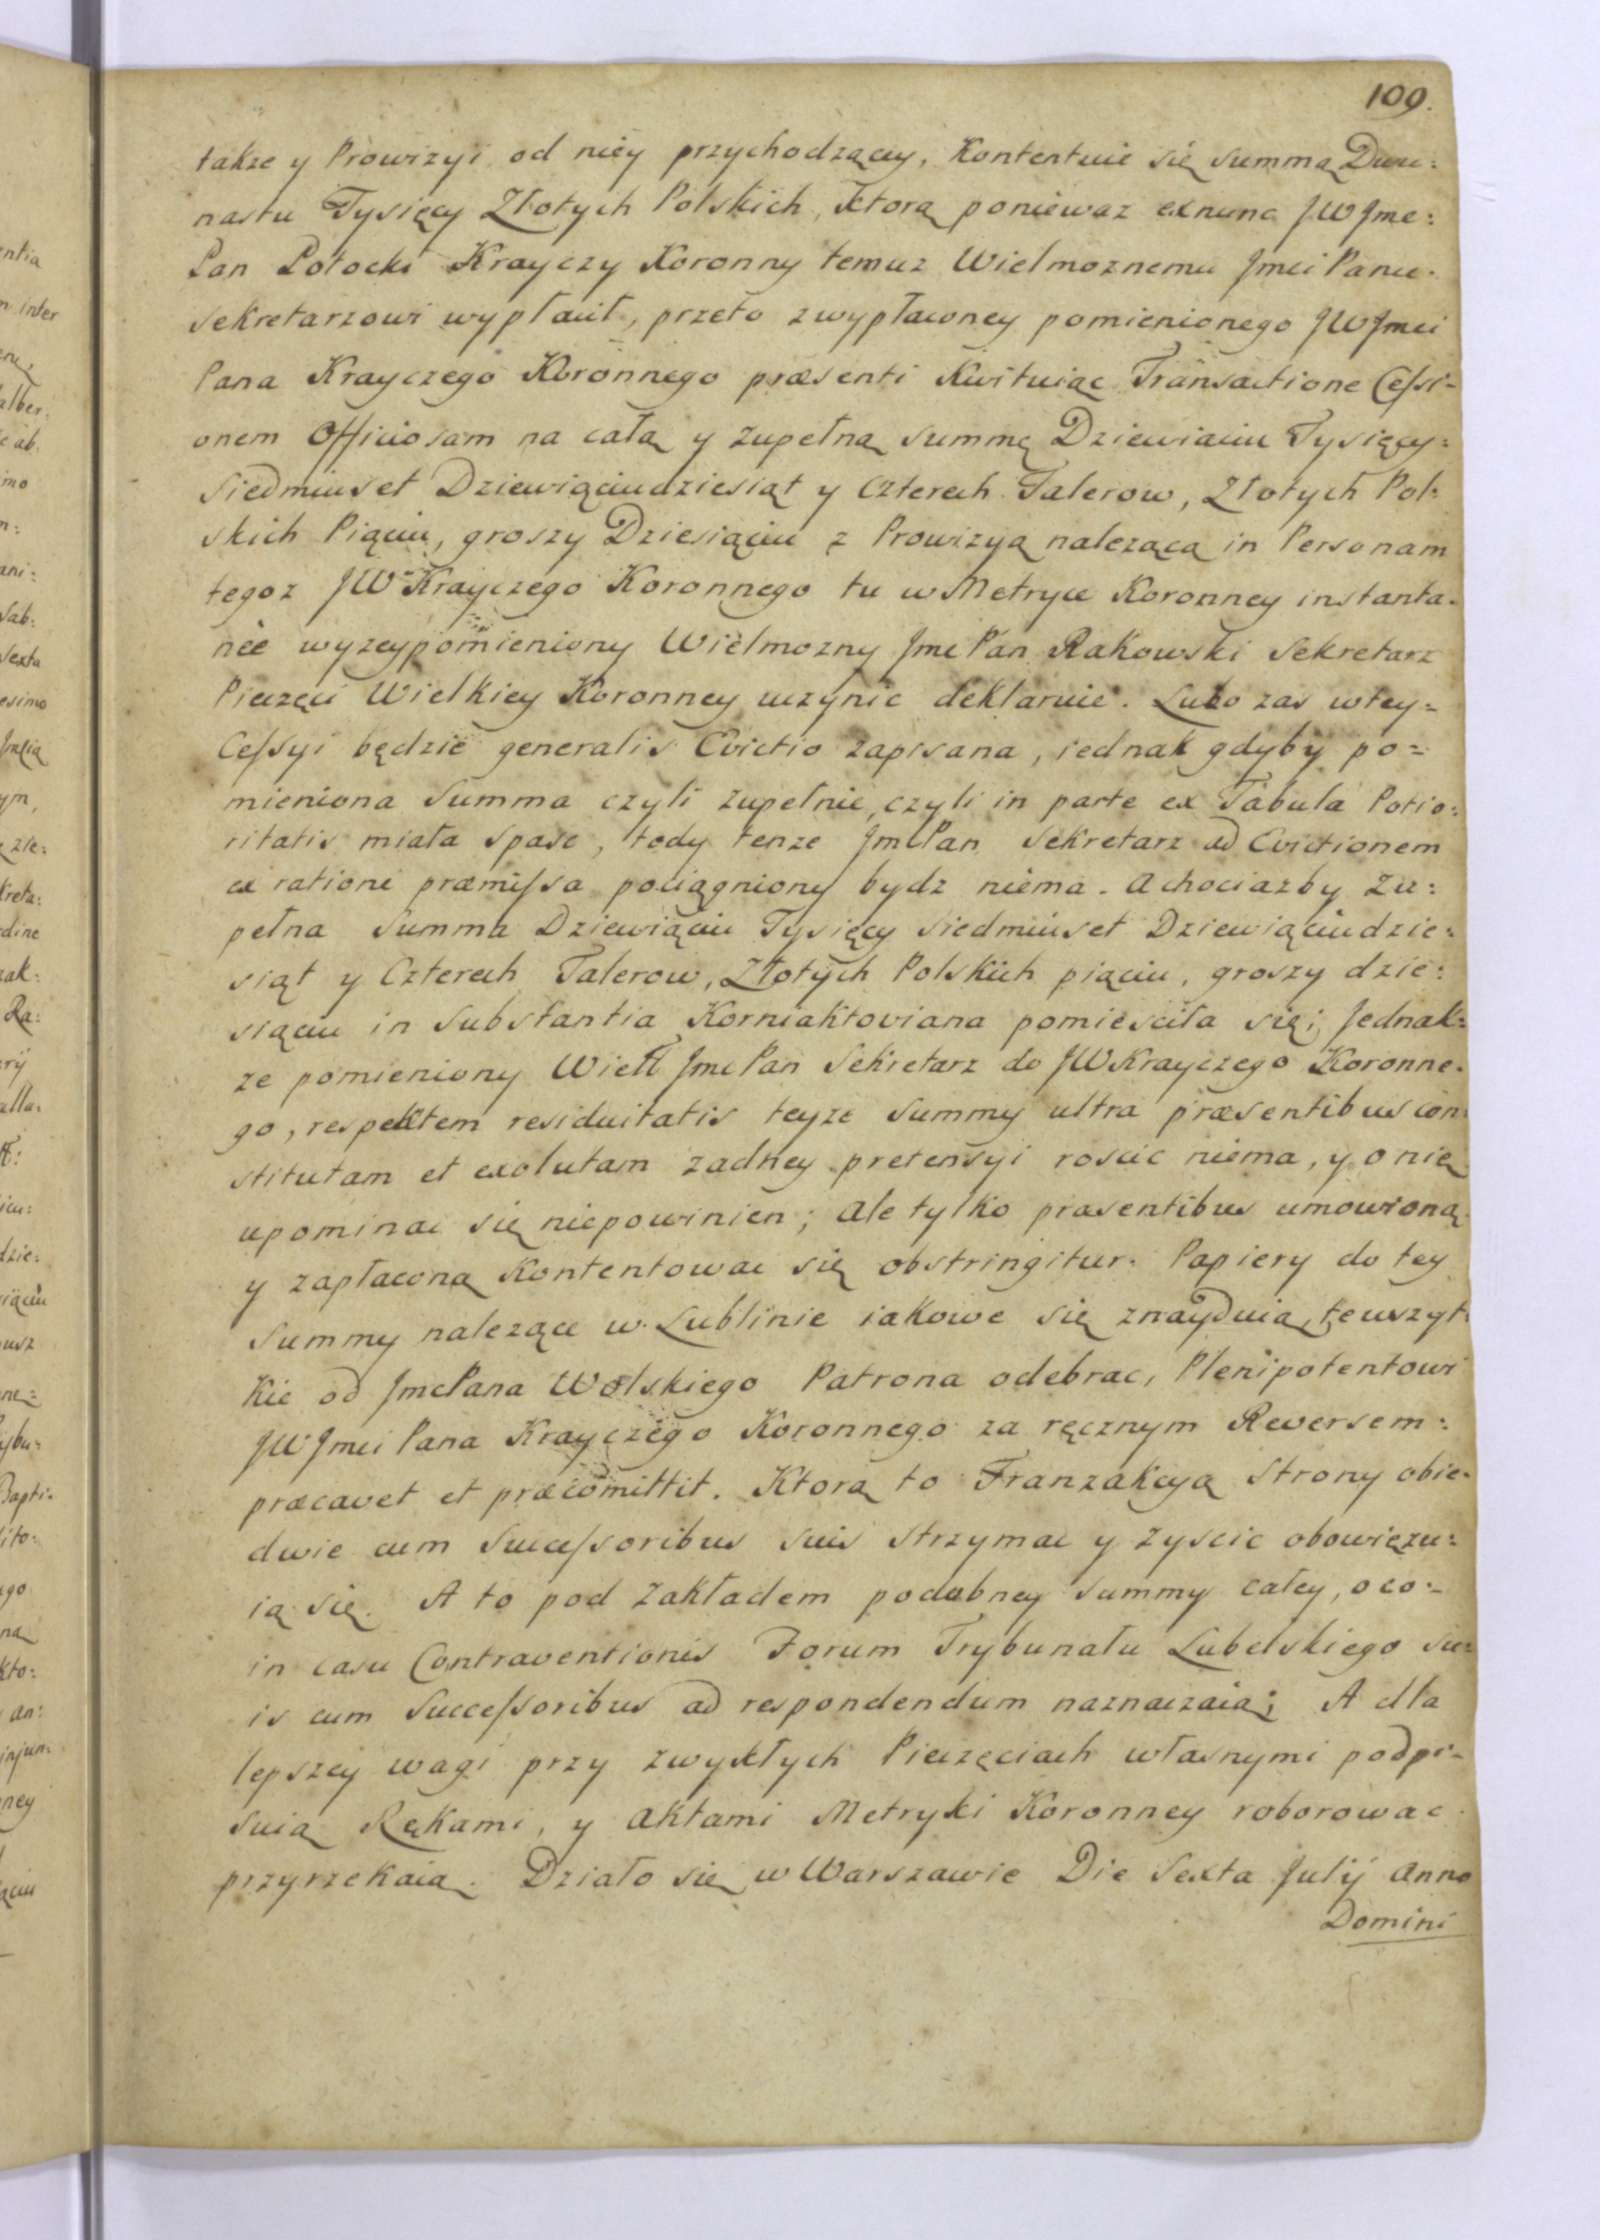 109.
takze y Prowizyi od niey przychodzącey, Kontentuie się summą Dwu:
nastu Tysięcy Złotych Polskich, Ktorą poniewaz exnunc JWJmc:
Pan Potocki Krayczy Koronny temuz Wielmoznemu Jmci Panu
Sekretarzowi wypłacił, przeto zwypłaconey pomienionego JWJmci
Pana Krayczego Koronnego præsenti Kwituiąc Transactione Cessi-
onem Officiosam na całą y zupełną summę Dziewiąciu Tysięcy:
Siedmiuset Dziewiąciudziesiąt y Czterech Talerow, Złotych Pol:
skich Piąciu, groszy Dziesiąciu z Prowizyą nalezącą in Personam
tegoz JW Krayczego Koronnego tu w Metryce Koronney instanta-
nèe wyzeypomieniony Wielmozny Jmc Pan Rakowski Sekretarz
Pieczęci Wielkiey Koronney uczynic deklaruie. Lubo zas wtey-
Cessyi będzie generalis Evictio zapisana, iednak gdyby po-
mieniona Summa czyli zupełnie, czyli in parte ex Tabula Potio:
ritatis miała spasc, tedy tenze JmcPan Sekretarz ad Evictionem
ex ratione præmissa pociągniony bydz niema. Achociazby Zu:
pełna Summa Dziewiąciu Tysięcy Siedmiuset Dziewiąciudzie:
siąt y Czterech Talerow, Złotych Polskich piąciu, groszy dzie:
siąciu in Substantia Korniaktoviana pomiesciła się; Jednak:
ze pomieniony Wielł JmcPan Sekretarz do JWKrayczego Koronne-
go, respektem residuitatis teyze Summy ultra præsentibus con:
stitutam et exolutam zadney pretensyi roscic niema, y o nię
upominac się niepowinien; Ale tylko præsentibus umowioną
y zapłaconą Kontentowac się obstringitur. Papiery do tey
Summy nalezące w Lublinie iakowe się znayduią, te wszyt:
kie od JmcPana Wolskiego Patrona odebrac, Plenipotentowi
JWJmci Pana Krayczego Koronnego za ręcznym Rewersem:
præcavet et præcomittit. Ktorą to Tranzakcyą Strony obie-
dwie cum Successoribus suis strzymac y zyscic obowięzu:
ią się. A to pod Zakładem podobney Summy całey, oco-
in casu Contraventionis Forum Trybunału Lubelskiego su:
is cum Successoribus ad respondendum naznaczaią; A dla
lepszey wagi przy zwykłych Pieczęciach własnymi podpi-
suią Rękami, y Aktami Metryki Koronney roborowac
przyrzekaią. Działo się w Warszawie Die Sexta Julij Anno
Domini